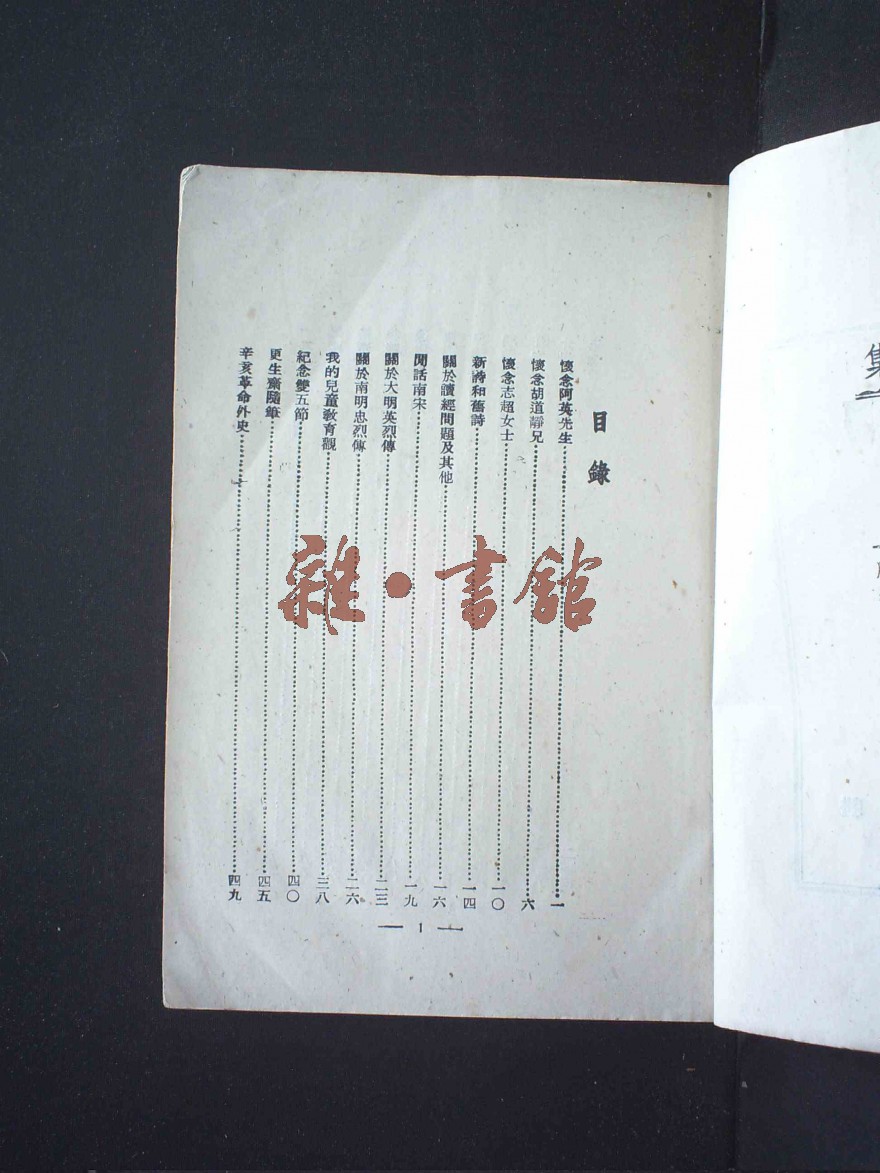 目錄
懷念阿英先生……一
懷念胡道靜兄……六
懷念志超女士……一〇
新詩和舊詩……一四
關於讀經問題及其他……一六
閒話南宋……一九
關於大明英烈傳……二三
關於南明忠烈傳……二六
我的兒童教育觀……三八
紀念雙五節……四〇
更生齋隨筆……四五
辛亥革命外史……四九
— 1 —
雜·書館
集